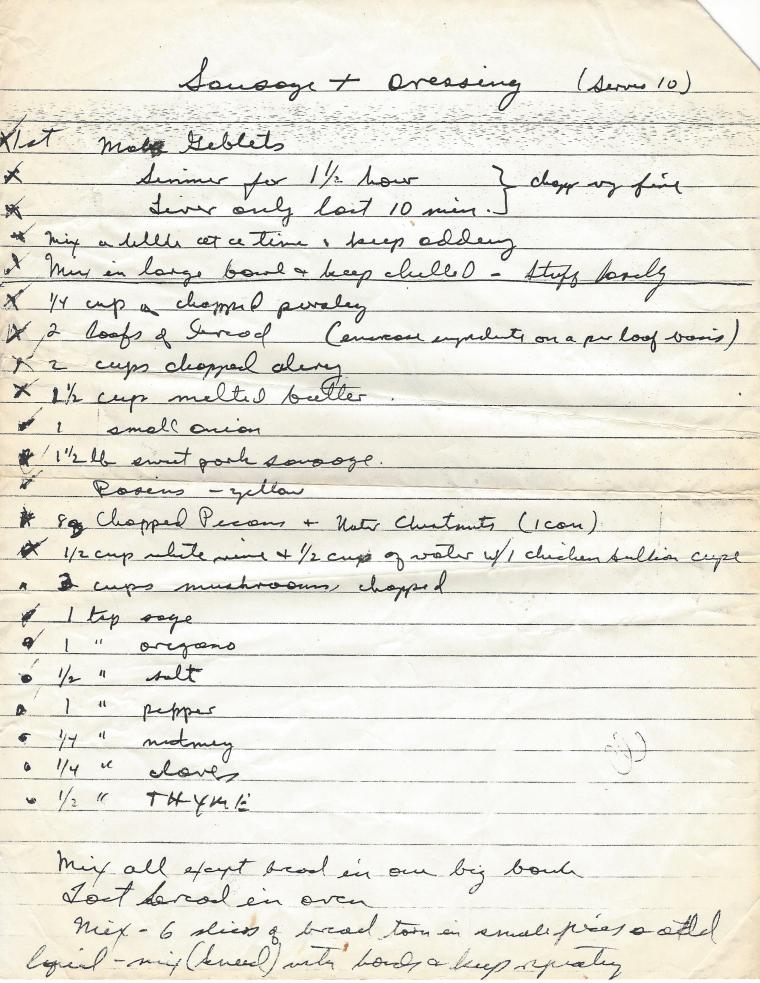 Sausage + Dressing (Serves 10)
1st Make Geblets
Simmer for 1 1/2 hour } chopp vy fine
Liver only last 10 min.
Mix a little at a time & keep adding
Mix in large bowl & keep chilled - Stuff loosely
1/4 cup chopped parsley
2 loafs of bread (increase ingredients on a per loaf basis)
2 cups chopped celery
1 1/2 cup melted butter
1 small onion
1 1/2 lb sweet pork sausage.
Rasins - yellow
8 Chopped Pecans + Water Chestnuts (1 can)
1/2 cup white wine & 1/2 cup of water w/1 chicken bullion cupe
cups mushrooms, chopped
1 tsp sage
1 " oregano
1/2 " salt
1 " pepper
1/4 " nutmeg
1/4 " cloves
1/2 " THYME
Mix all except bread in one big bowl
Tost bread in oven
Mix - 6 slices of bread torn in small pieces add
liquid - mix (knead) with hands & keep repeating